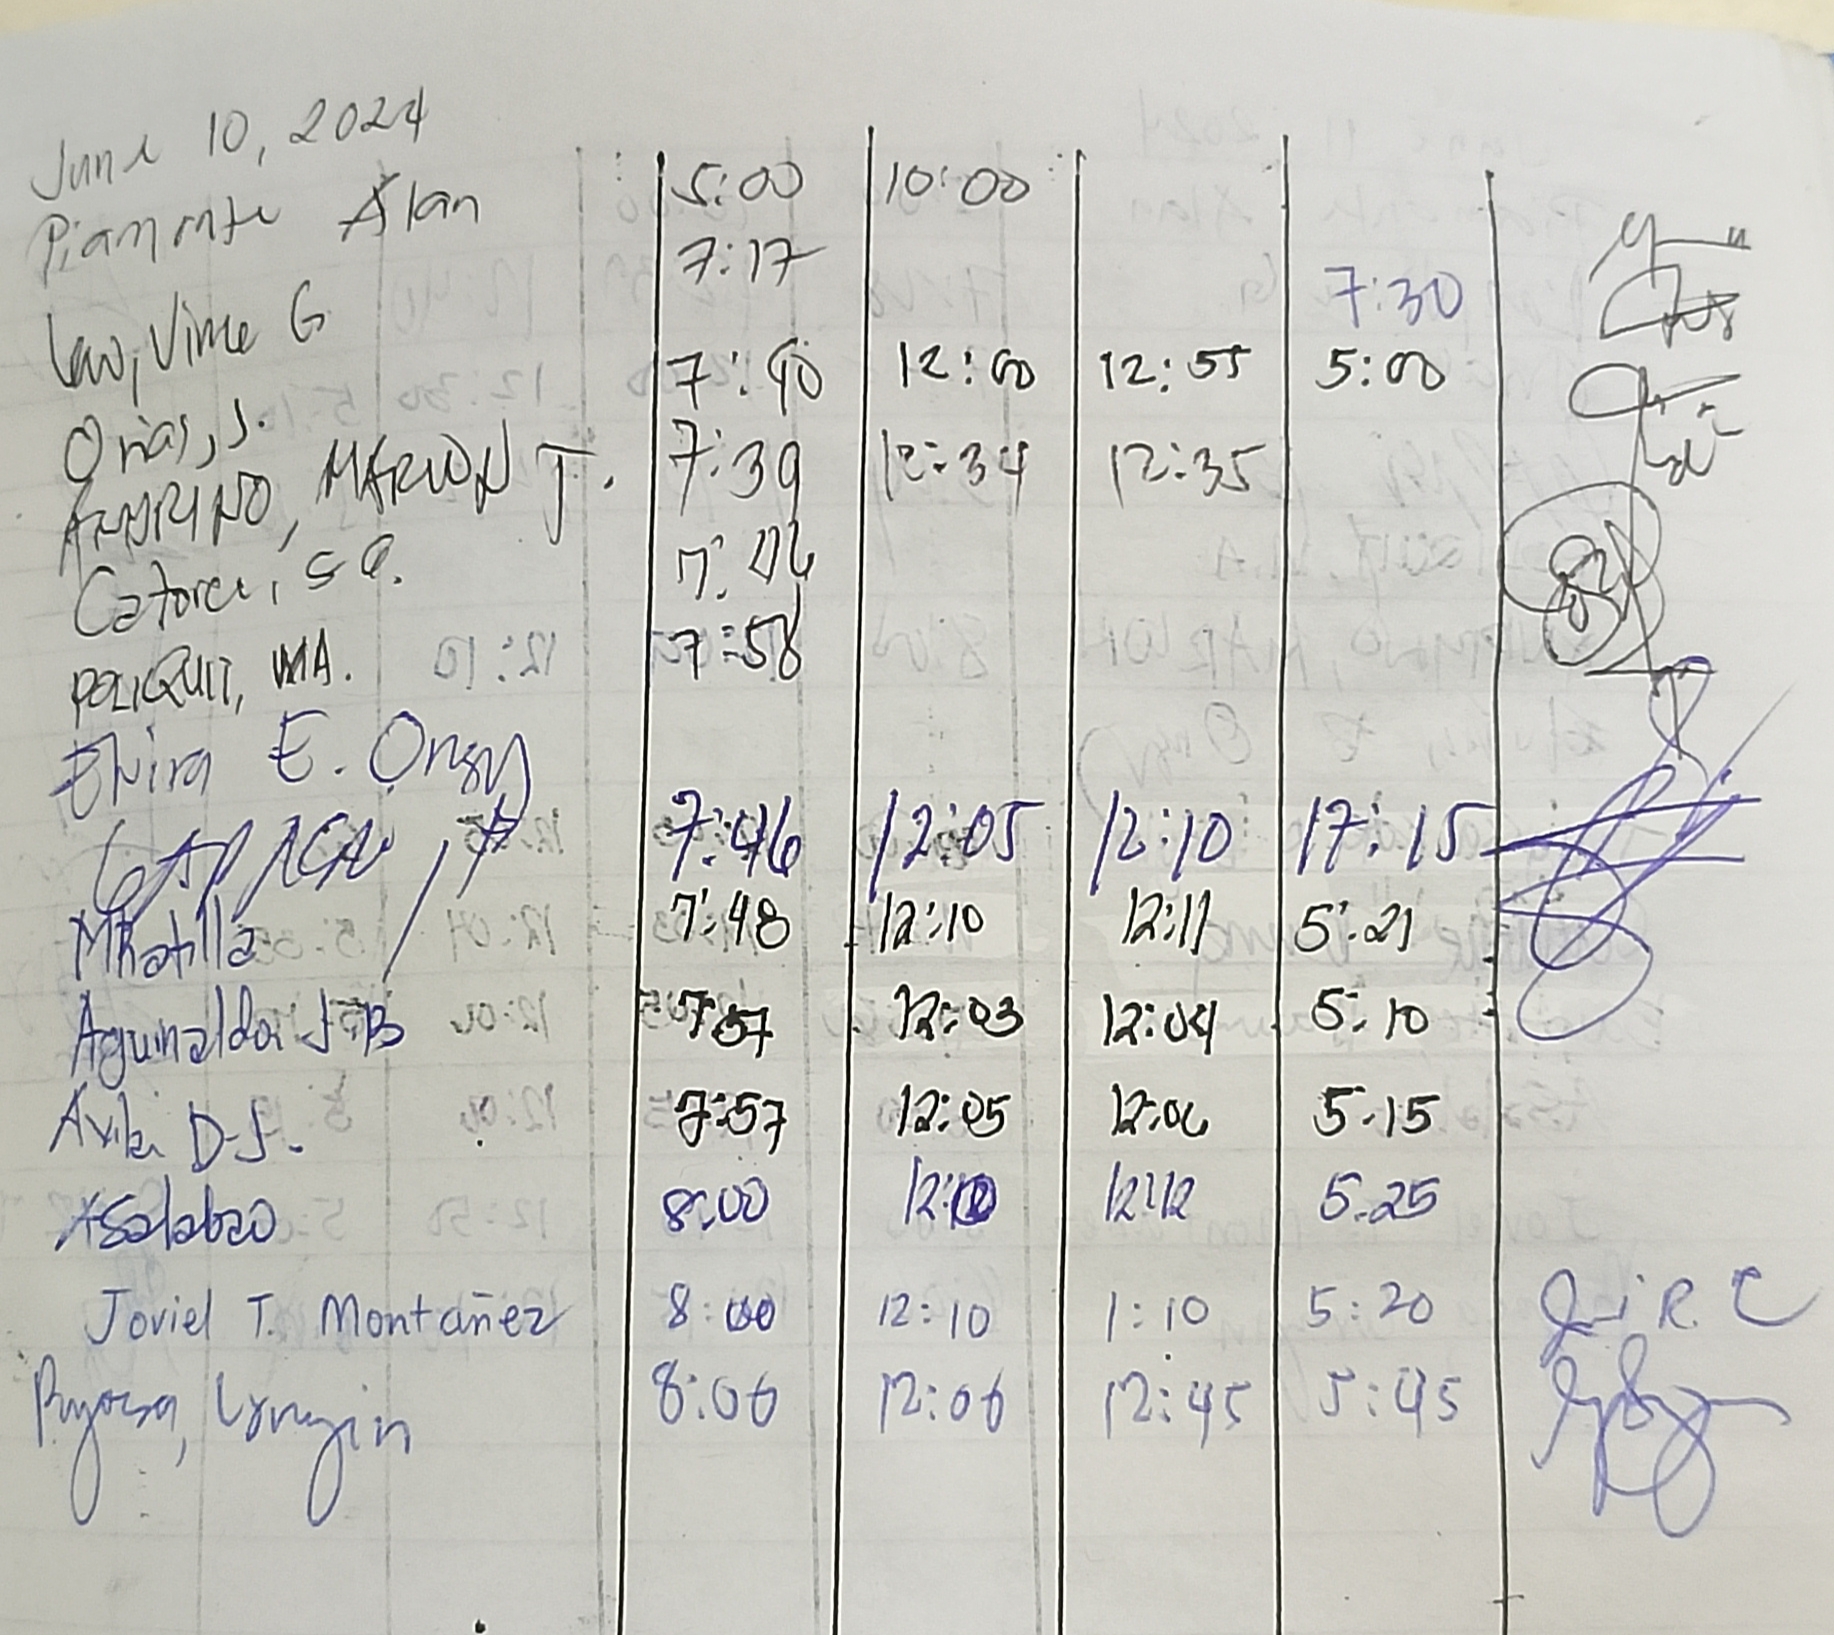 June 10, 2024
Piamonte Alan 5:00 10:00
Law, Vince G 7:17 7:30
Orias, J. 7:40 12:00 12:55 5:00
MARLON J. 7:39 12:34 12:35
Catorce, S Q. 7:06
POLIQUIT, MA. 7:58
Elvira E. Ongy
7:46 12:05 12:10 17:15
Mratilla 7:48 12:10 12:11 5:21
Aguinaldo, J.B 7:57 12:03 12:04 5:10
Avila D.J. 7:57 12:05 12:06 5:15
Asalabao 8:00 12:12 5:25
Joviel T. Montañez 8:00 12:10 1:10 5:20
8:06 12:06 12:45 5:45